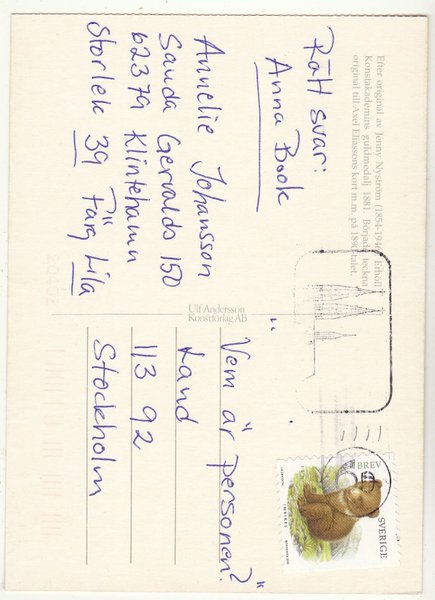 Efter original av Jenny Nyström (1854-1946). Erhöll
Konstakademins guldmedalj 1881. Började teckna
original till Axel Eliassons kort m.m. på 1890-talet.
Rätt svar:
Anna Book
Annelie Johansson
Sanda Gervalds 150
62379 Klintehamn
Storlek 39 Färg Lila
Ulf Andersson
Konstförlag AB
"Vem är personen?"
Land
113 92
Stockholm
BREV
SVERIGE